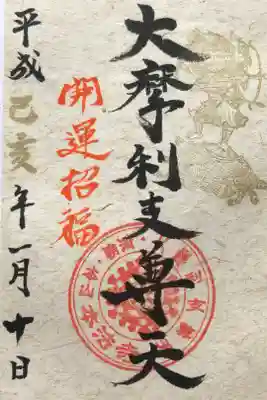 大摩利支尊天
開運招福
平成己亥年一月十日